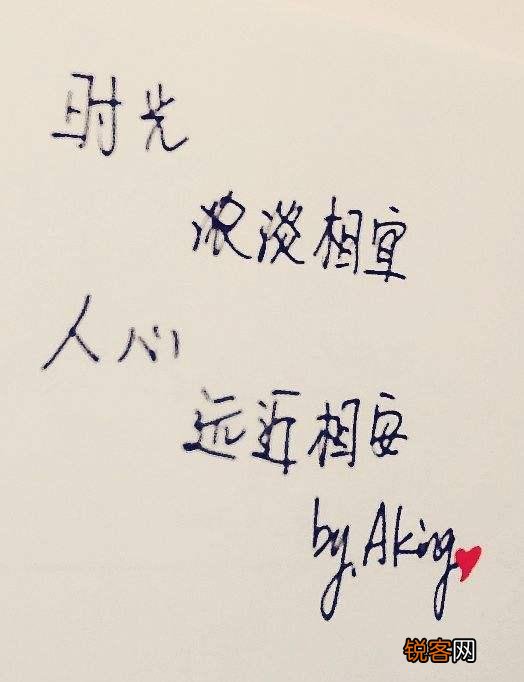 时光
浓淡相宜
人心
远近相安
by.Aking
锐客网